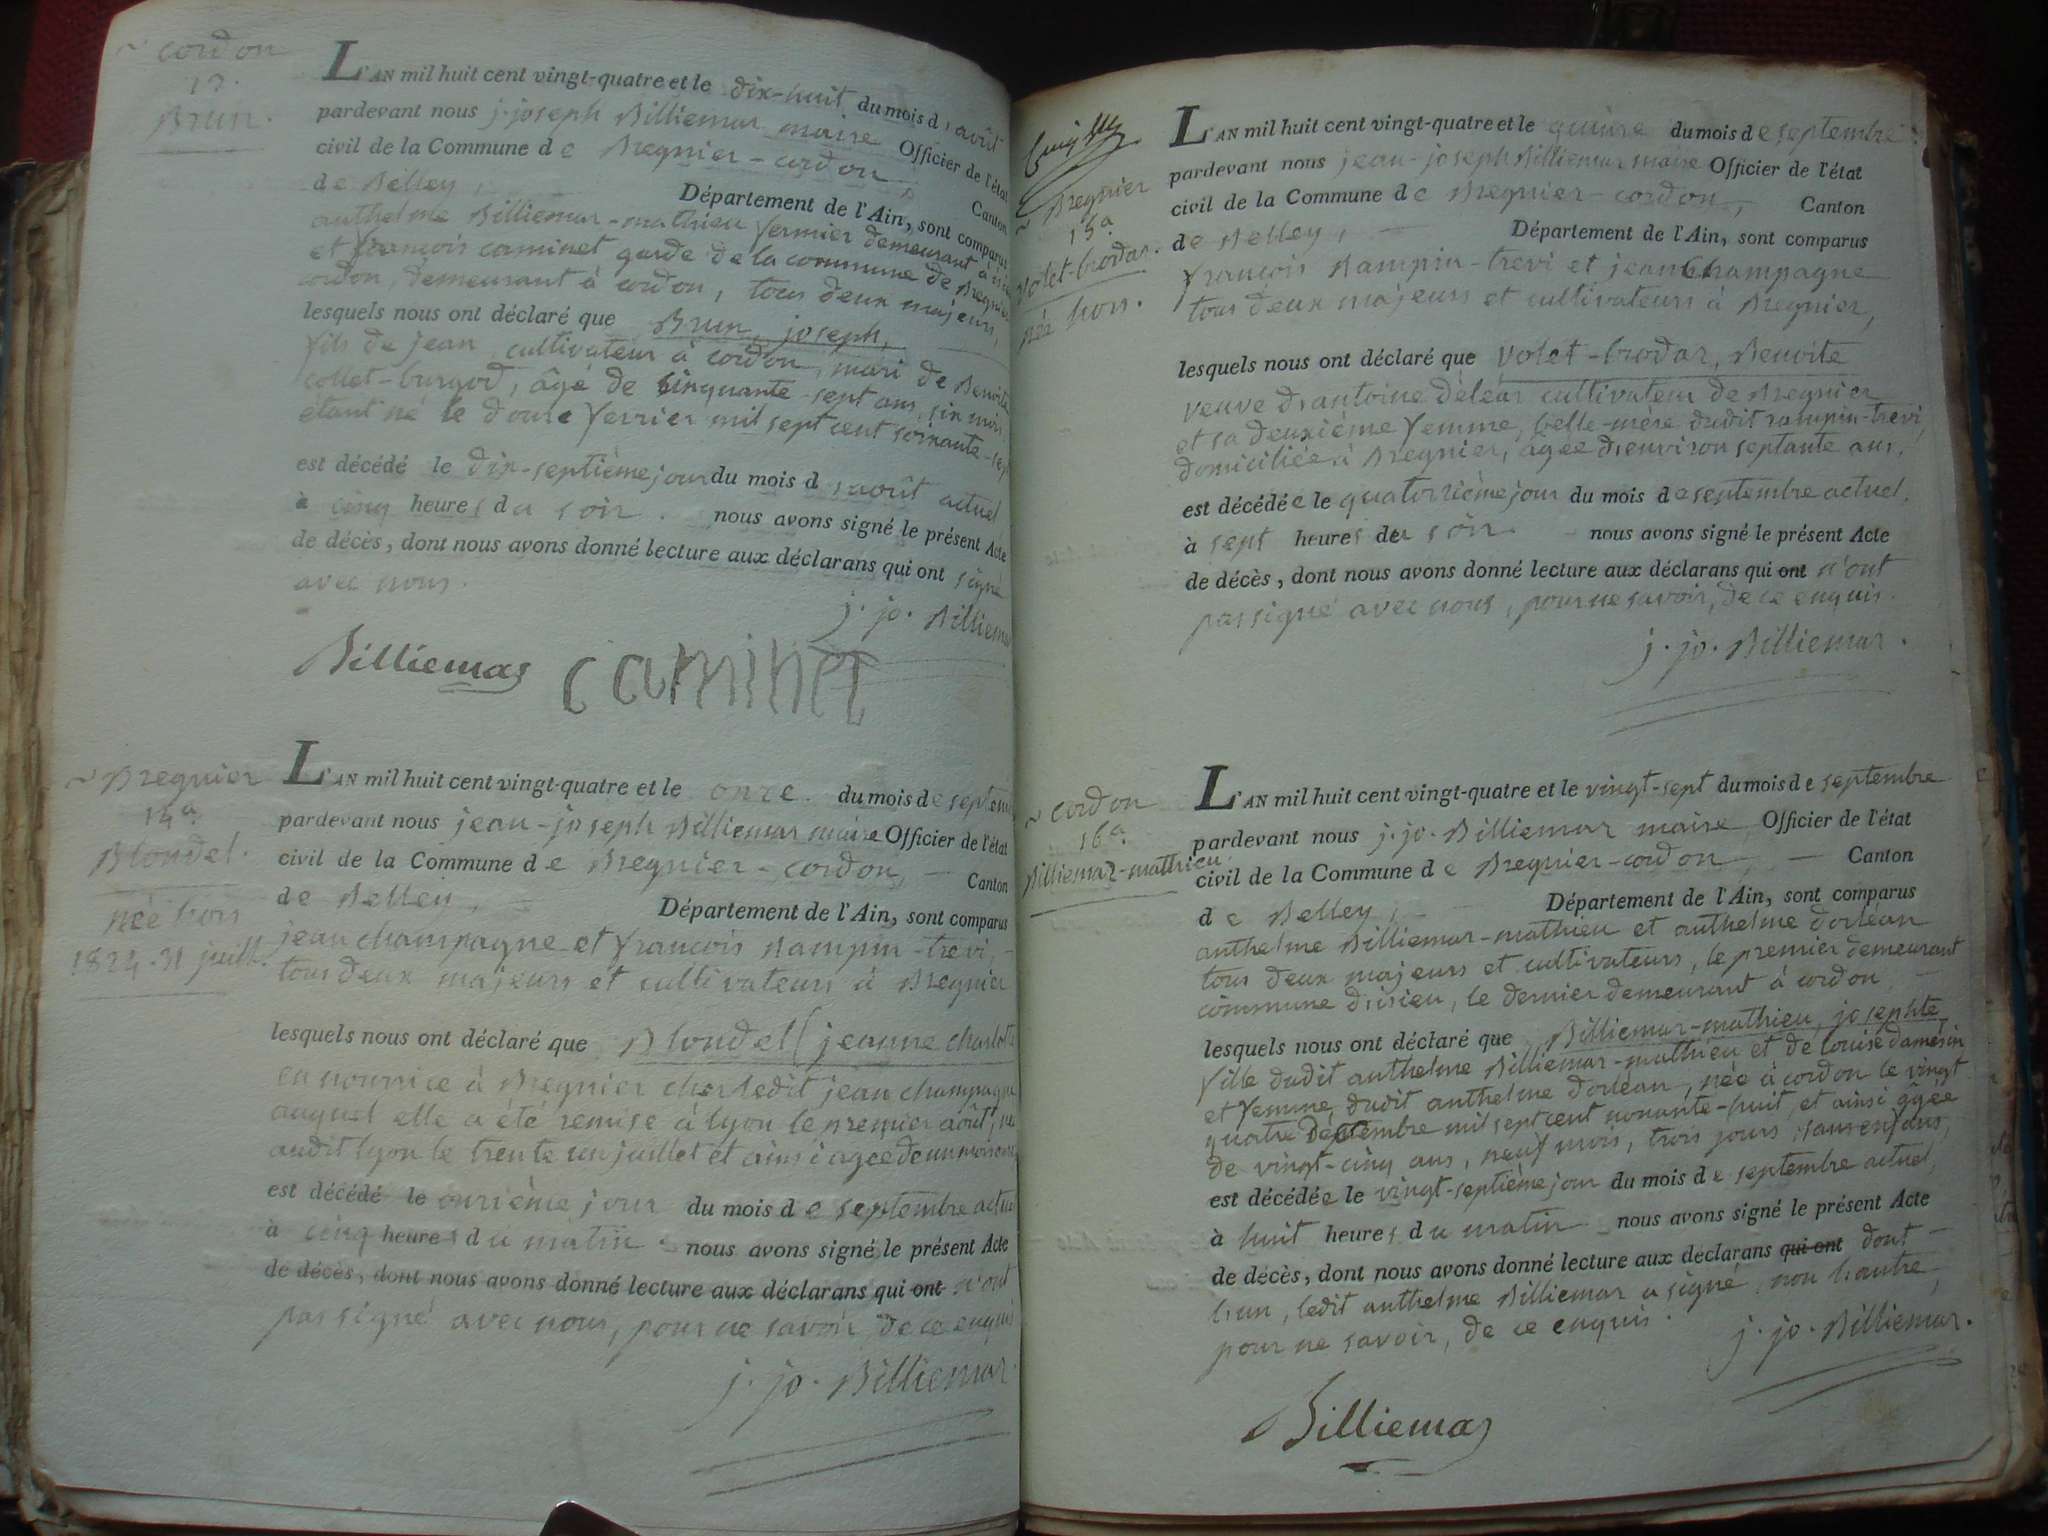 ~ cordon
13.
Brun.
L'AN mil huit cent vingt-quatre et le dix-huit du mois d'août
pardevant nous j. joseph Billiemar maire Officier de l'état
civil de la Commune de Bregnier-cordon, Canton
de Belley, Département de l'Ain, sont comparus
anthelme Billiemar-mathieu fermier demeurant à
et françois caminet garde de la commune de Bregnier
cordon, demeurant à cordon, tous deux majeurs,
lesquels nous ont déclaré que Brun, joseph,
fils de jean, cultivateur à cordon, mari de Benoite
collet-burgod, âgé de cinquante-sept ans, six mois
étant né le douze fevrier mil sept cent soixante-sept
est décédé le dix-septième jour du mois d'août actuel
à cinq heures du soir. nous avons signé le présent Acte
de décès, dont nous avons donné lecture aux déclarans qui ont signé
avec nous.
j. jo. Billiemar
Billiemas caminet
~ Bregnier
14a.
Blondel.
née hors
1824. 31 juill.
L'AN mil huit cent vingt-quatre et le onze du mois de septem
pardevant nous jean-joseph Billiemar maire Officier de l'état
civil de la Commune de Bregnier-cordon, Canton
de Belley, Département de l'Ain, sont comparus
jean champagne et françois Rampin-trevi,
tous deux majeurs et cultivateurs à Bregnier
lesquels nous ont déclaré que Blondel (jeanne charlotte
en nourrice à Bregnier chez ledit jean champagne
auquel elle a été remise à lyon le premier août, née
audit lyon le trente un juillet et ainsi agée de un mois
est décédé le onzième jour du mois de septembre actuel
à cinq heures du matin. nous avons signé le présent Acte
de décès, dont nous avons donné lecture aux déclarans qui ont n'ont
pas signé avec nous, pour ne savoir, de ce enquis
j. jo. Billiemar.
~ Bregnier
15a.
Volet-brodar.
née hors.
L'AN mil huit cent vingt-quatre et le quinze du mois de septembre
pardevant nous jean-joseph Billiemar maire Officier de l'état
civil de la Commune de Bregnier-cordon, Canton
de Belley, Département de l'Ain, sont comparus
françois Rampin-trevi et jean Champagne
tous deux majeurs et cultivateurs à Bregnier,
lesquels nous ont déclaré que Volet-brodar, Benoite
veuve d'antoine déléar cultivateur de Bregnier
et sa deuxième femme, belle-mère dudit rampin-trevi,
domiciliée à Bregnier, âgée d'environ septante ans,
est décédée le quatorzième jour du mois de septembre actuel,
à sept heures du soir. nous avons signé le présent Acte
de décès, dont nous avons donné lecture aux déclarans qui ont n'ont
pas signé avec nous, pour ne savoir, de ce enquis.
j. jo. Billiemar.
~ cordon
16a.
Billiemar-mathieu
L'AN mil huit cent vingt-quatre et le vingt-sept du mois de septembre
pardevant nous j. jo. Billiemar maire Officier de l'état
civil de la Commune de Bregnier-cordon, Canton
de Belley, Département de l'Ain, sont comparus
anthelme Billiemar-mathieu et anthelme dorléan
tous deux majeurs et cultivateurs, le premier demeurant
commune d'isieu, le dernier demeurant à cordon
lesquels nous ont déclaré que Billiemar-mathieu, josephte
fille dudit anthelme Billiemar-mathieu et de louise damésin
et femme dudit anthelme dorléan, née à cordon le vingt
quatre décembre mil sept cent nonante-huit, et ainsi âgée
de vingt-cinq ans, neuf mois, trois jours, sans enfans,
est décédée le vingt-septième jour du mois de septembre actuel,
à huit heures du matin nous avons signé le présent Acte
de décès, dont nous avons donné lecture aux déclarans qui ont dont
l'un, ledit anthelme Billiemar a signé, non l'autre,
pour ne savoir, de ce enquis.
j. jo. Billiemar.
Billiemas